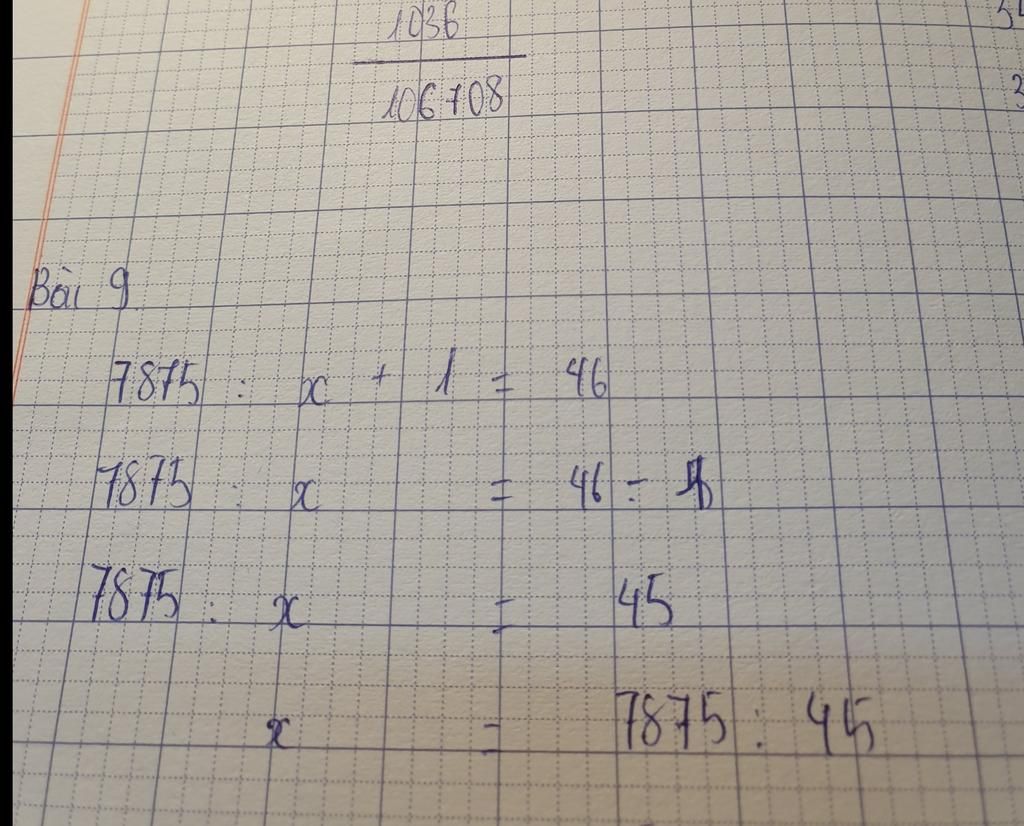 1036
106708
Bài 9
7875 : x + 1 = 46
7875 : x = 46 - 1
7875 : x = 45
x = 7875 : 45